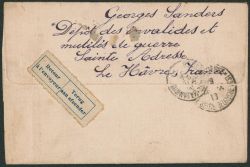 Georges Sanders
Dépôt des invalides et
mutilés de guerre
Sainte Adresse
Le Hâvre, France
Retour Terug
à l'envoyeur aan afzender